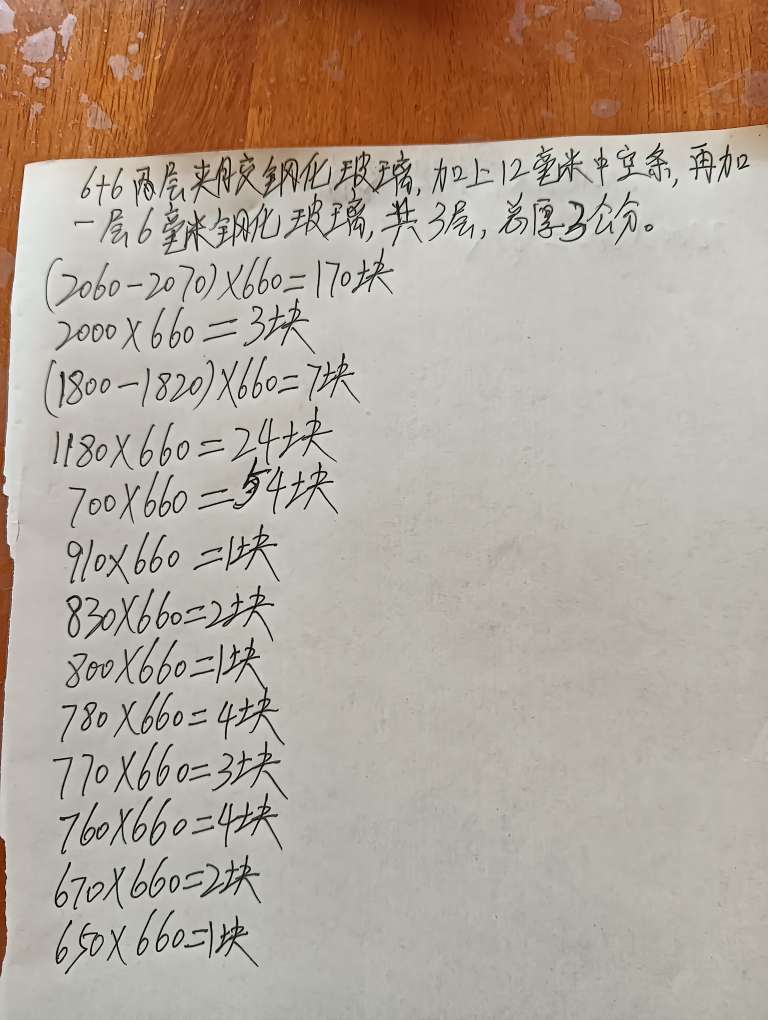 6+6两层夹胶钢化玻璃,加上12毫米中空条,再加
一层6毫米钢化玻璃,共3层,总厚3公分。
(2060-2070)×660=170块
2000×660=3块
(1800-1820)×660=7块
1180×660=24块
700×660=54块
910×660=1块
830×660=2块
800×660=1块
780×660=4块
770×660=3块
760×660=4块
670×660=2块
650×660=1块